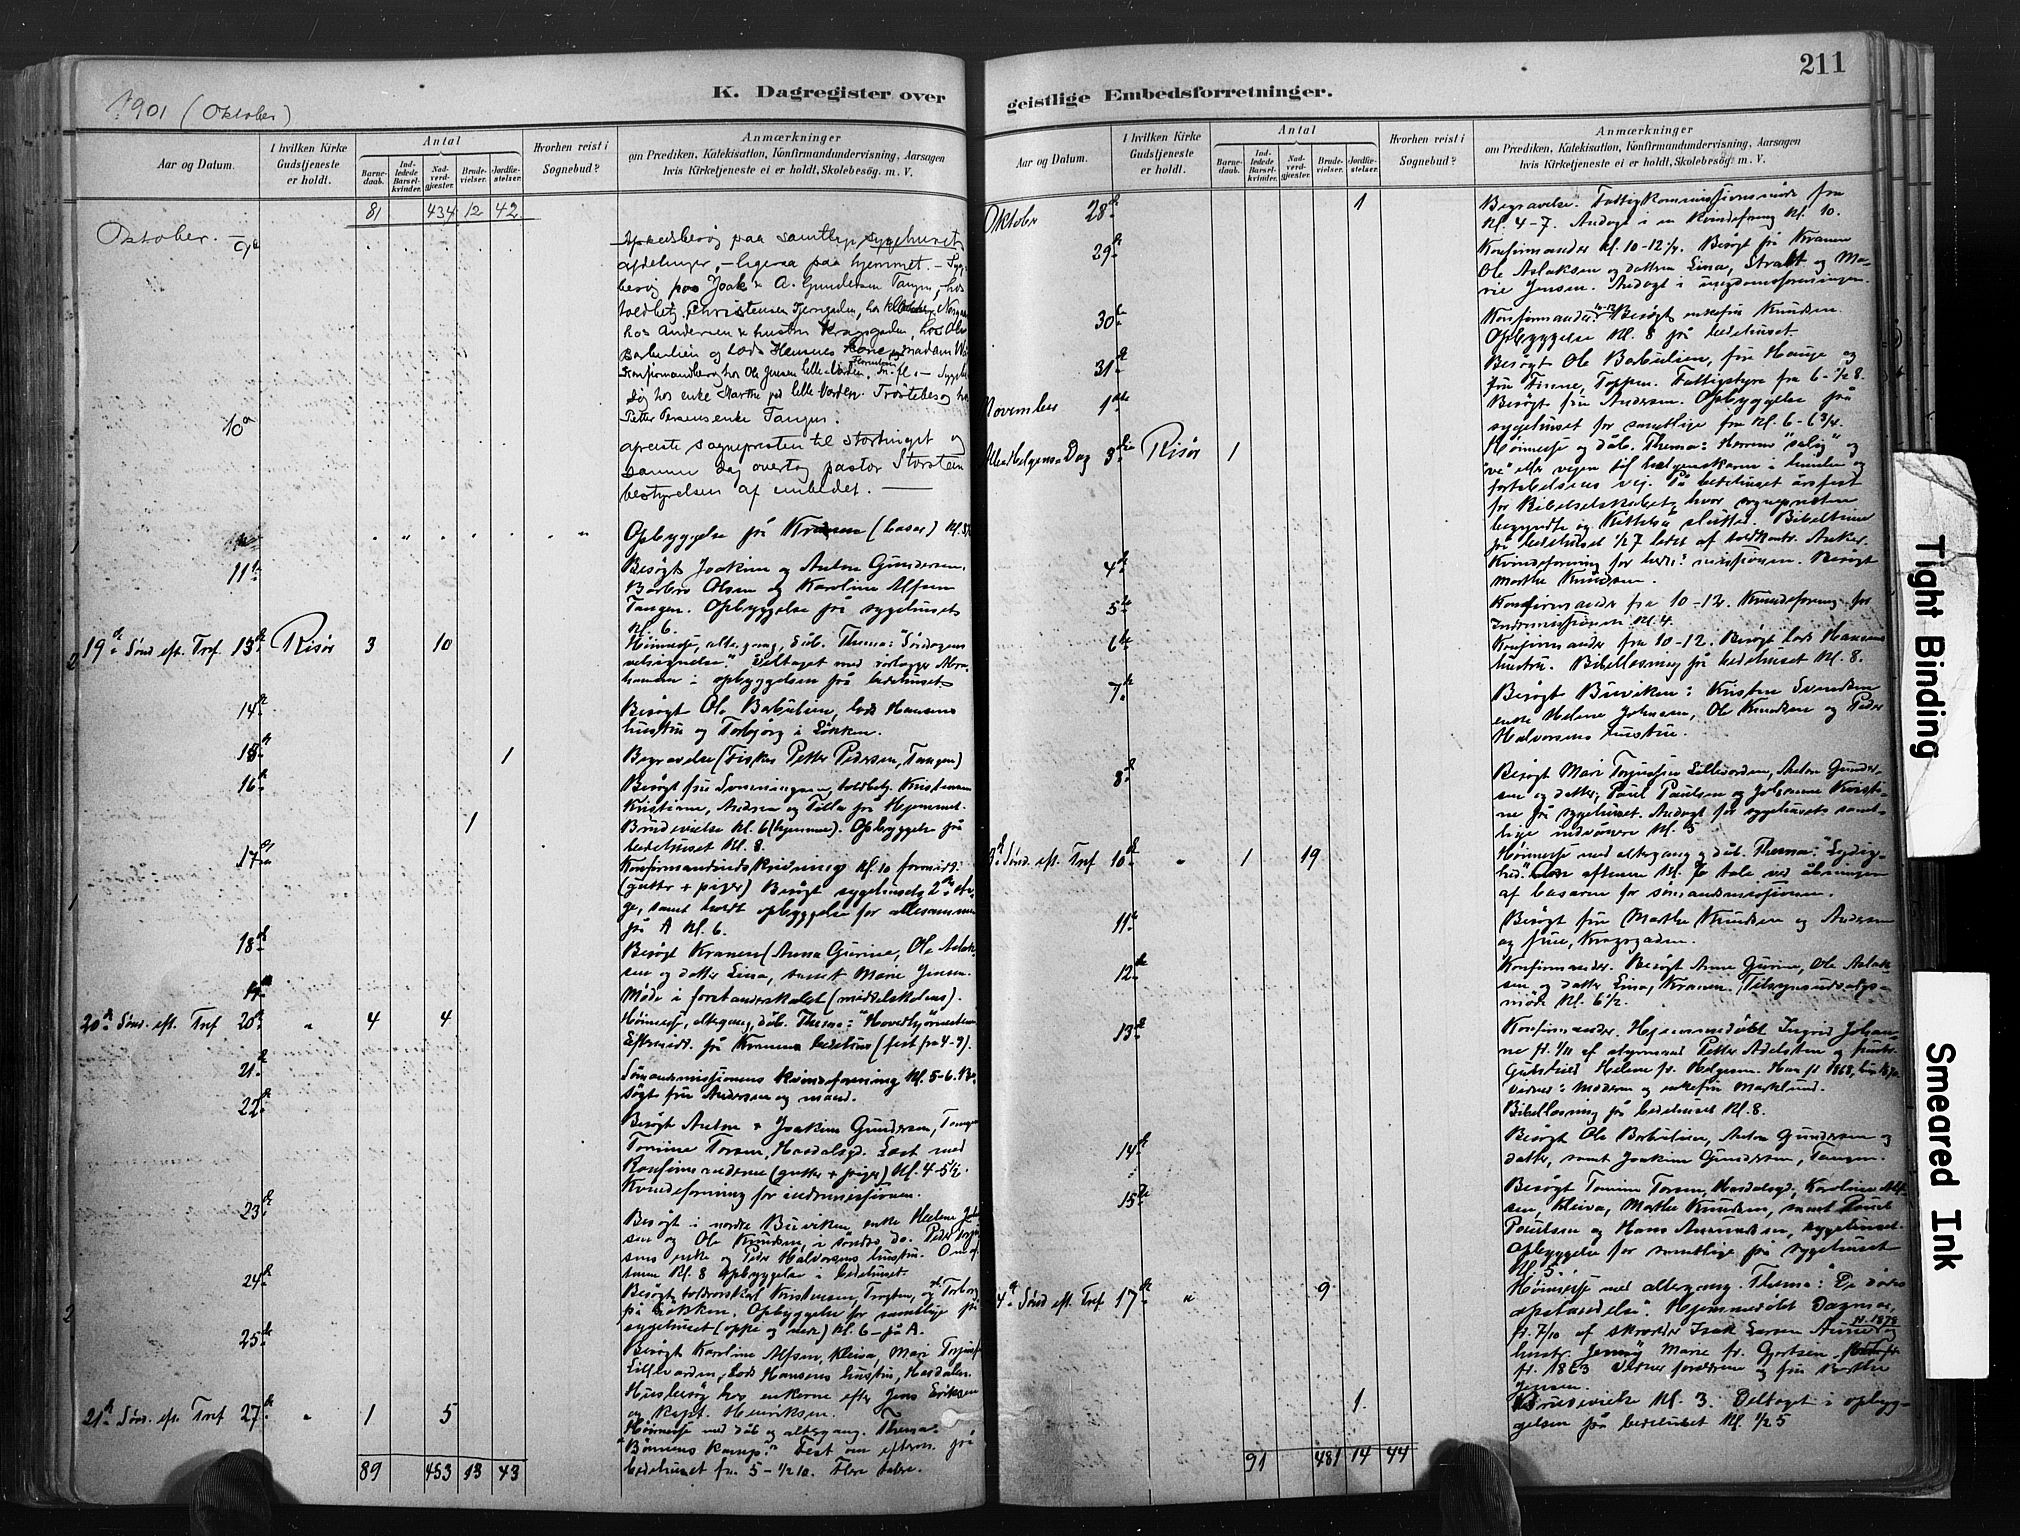 1901 (Oktober)
K. Dagregister over
Aar og Datum.
I hvilken Kirke Gudstjeneste er holdt.
Antal
Barnedaab.
Indledede Barselkvinder.
Nadverdgjæster.
Brudevielser.
Jordfæstelser.
Hvorhen reist i Sognebud?
Anmærkninger
om Prædiken, Katekisation, Konfirmandundervisning, Aarsagen
hvis Kirketjeneste ei er holdt, Skolebesøg. m. V.
81 434 12 42
Oktober. 9de
paa samtlige sygehusets
afdelinger, - ligesaa paa hjemmet. -
paa Joak & A. Gundersen Tangen, hos
toldbetj. Christensen
hos Andersen & hustru Kragsgaden hos Ole
Barbulien og lods Hansens kone
hos Ole Jensen Lille-Varden
hos enke Marthe på Lille Varden. Trøstebesøg hos
Petter Persens enke Tangen.
10de
afreiste sognepresten til Stortinget og
samme dag overtog pastor Storsten
bestyrelsen af embedet.
Opbyggelse på Kranen (basar)
11te
Besøgt Joakim og Anton Gundersen,
Barbro Olsen og Karoline Alfsen
Tangen. Opbyggelse på sygehuset
Kl. 6.
19de Sønd. eft. Tref. 13de Risør 3 10
Høimesse, altergang, dåb. Thema: "Søndagens
velsignelse." Deltaget med
i opbyggelsen på bedehuset
14de
Besøgt Ole Barbulien, lods Hansens
hustru og Torbjørg i Løkken.
15de 1
Begravelse (Fisker Petter Pedersen, Tangen)
16de
Besøgt fru Sonningsen, toldbetj. Kristensen
Kristiane, Andrea og Tilla på Hjemmet.
1
Brudevielse Kl. 6 (hjemme). Opbyggelse på
bedehuset Kl. 8.
17de
Konfirmandindskrivning Kl. 10 formidd.
(gutter + piger) Besøgt sygehusets 2den
samt holdt opbyggelse for allesammen
på A Kl. 6.
18de
Besøgt Kranen (Anna Gurine, Ole Aslak-
sen og datter Lina, samt Marie Jensen.
19de
Møde i forstanderskabet (middelskolens).
20de Sønd. eft. Tref 20de " 4 4
Høimesse, altergang, dåb. Thema: "Hovedhjørnestenen
Eftermidd. på Kranens bedehus (fest fra 4-9).
21de
Sømandsmissionens kvindeforening Kl. 5-6. Be-
søgt fru Andersen og mand.
22de
Besøgt Anton & Joakim Gundersen, Tangen
Tomine Torsen, Hasdalsgd. Læst med
Konfirmanderne (gutter + piger) Kl. 4-5½
Kvindeforening for indremissionen.
23de
Besøgt i nordre Buviken enke Helene Johan
sen og Ole Knudsen, i søndre do. Peder
sens enke og Peder Halvorsens hustru. Om af-
tenen Kl. 8 opbyggelse i bedehuset.
24de
Besøgt Kristensen, og Torborg
på Løkken. Opbyggelse for samtlige på
sygehuset (oppe og nede) Kl. 6 - på A.
25de
Besøgt Karoline Alfsen, Kleiva, Mari
Lillevarden, lods Hansens hustru, Hasdalen
Husbesøg hos enkerne efter Jens Eriksen
og kapt. Henriksen.
21de Sønd. eft. Tref 27de " 1 5
Høimesse med dåb og altergang. Thema:
"Børnenes kamp." Fest om efterm. på
bedehuset fra 5-½10. Flere talere.
89 453 13 43
geistlige Embedsforretninger.
211
Aar og Datum.
I hvilken Kirke Gudstjeneste er holdt.
Antal
Barnedaab.
Indledede Barselkvinder.
Nadverdgjæster.
Brudevielser.
Jordfæstelser.
Hvorhen reist i Sognebud?
Anmærkninger
om Prædiken, Katekisation, Konfirmandundervisning, Aarsagen
hvis Kirketjeneste ei er holdt, Skolebesøg. m. V.
Oktober 28de 1
Begravelse. Fattigkommissionsmøde fra
Kl. 4-7. Andagt i en Kvindeforening Kl. 10.
29de
Konfirmander Kl. 10-12½. Besøgt på Kranen
Ole Aslaksen og datter Lina, og Ma-
rie Jensen. Andagt i ungdomsforeningen.
30te
Konfirmander 10-12. Besøgt enkefru Knudsen.
Opbyggelse Kl. 8 på bedehuset.
31te
Besøgt Ole Barbulien, fru Hauge og
fru Finne, Toppen. Fattigstyre fra 6-½8.
November 1ste
Besøgt fru Andersen. Opbyggelse på
sygehuset for samtlige fra Kl. 6-6¾.
Alle Helgens Dag 3die Risør 1
Høimesse og dåb. Thema: Herrens "salig" og
"ve" eller veien til helgenskaren i himlen og
fortabelsens vej. På bedehuset årsfest
for Bibelselskabet, hvor sognepræsten
begyndte og Kittelsen sluttet. Bibeltime
på bedehuset ½7 ledet af toldkontr. Anker.
4de
Kvindeforening for missionen. Besøgt
Marthe Knudsen.
5te
Konfirmander fra 10-12. Kvindeforening for
Indremissionen Kl. 4.
6te
Konfirmander fra 10-12. Besøgt lods Hansens
hustru. Bibellæsning på bedehuset Kl. 8.
7de
Besøgt Buviken: Kristen Svendsen
enke Helene Johnsen, Ole Knudsen og Peder
Halvorsens hustru.
8de
Besøgt Mari Lillevarden, Anton Gunder-
sen og datter, Paul Paulsen og Johanne Kristi-
ne på sygehuset. Andagt for sygehusets samt-
lige indvånere Kl. 5
23de Sønd. eft. Tref 10de " 1 19
Høimesse med altergang og dåb. Thema: "Lydig-
hed." Om aftenen Kl. 7 tale ved åbningen
af basaren for sømandsmissionen.
11te
Besøgt fru Marthe Knudsen og Andersen
og frue, Kragsgaden.
12te
Konfirmander. Besøgt Anne Gurine, Ole Aslak-
sen og datter Lina, Kranen. Tilsynsudvalgs-
møde Kl. 6½.
13de
Konfirmander. Hjemmedøbt Ingrid Johan-
ne f. 1/11 af Petter Adelsten og hustr.
Helene f. Helgesen. Han f. 1868,
moderen og enkefru Marklund.
Bibellæsning på bedehuset Kl. 8.
14de
Besøgt Ole Barbulien, Anton Gundersen og
datter, samt Joakim Gundersen, Tangen.
15de
Besøgt Tomine Torsen, Hasdalsgd, Karoline Alf-
sen, Kleiva, Marthe Knudsen, samt Paul
Paulsen og Hans Amundsen, sygehuset.
Opbyggelse for samtlige på sygehuset
Kl. 5.
24de Sønd eft. Tref 17de " 9
Høimesse med altergang. Thema: "De dødes
opstandelse". Hjemmedøbt Dagmar,
f. 7/10 af skrædder Isak Larsen f. 1878 og
hustr. Jenny Marie f. Gjertsen
f. 1863 Vidner forældrene og fru Marthe
Jensen.
1
Brudevielse Kl. 3. Deltaget i opbyg-
gelsen på bedehuset Kl. ½5
91 481 14 44
Tight Binding
Smeared Ink